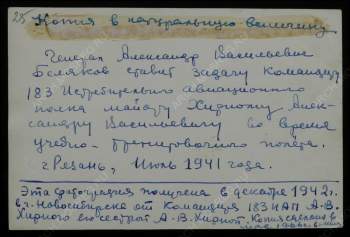 25 Копия в натуральную величину
Генерал Александр Васильевич
Беляков ставит задачу Командиру
183 Истребительного авиационного
полка майору Хирному Алек-
сандру Васильевичу во время
учебно-тренировочного полёта.
г. Рязань, Июль 1941 года.
Эта фотография получена в декабре 1942 г.
в г. Новосибирске от Командира 183 ИАП А.В.
Хирного его сестрой А.В. Хирной. Копия сделана в
1966 г.